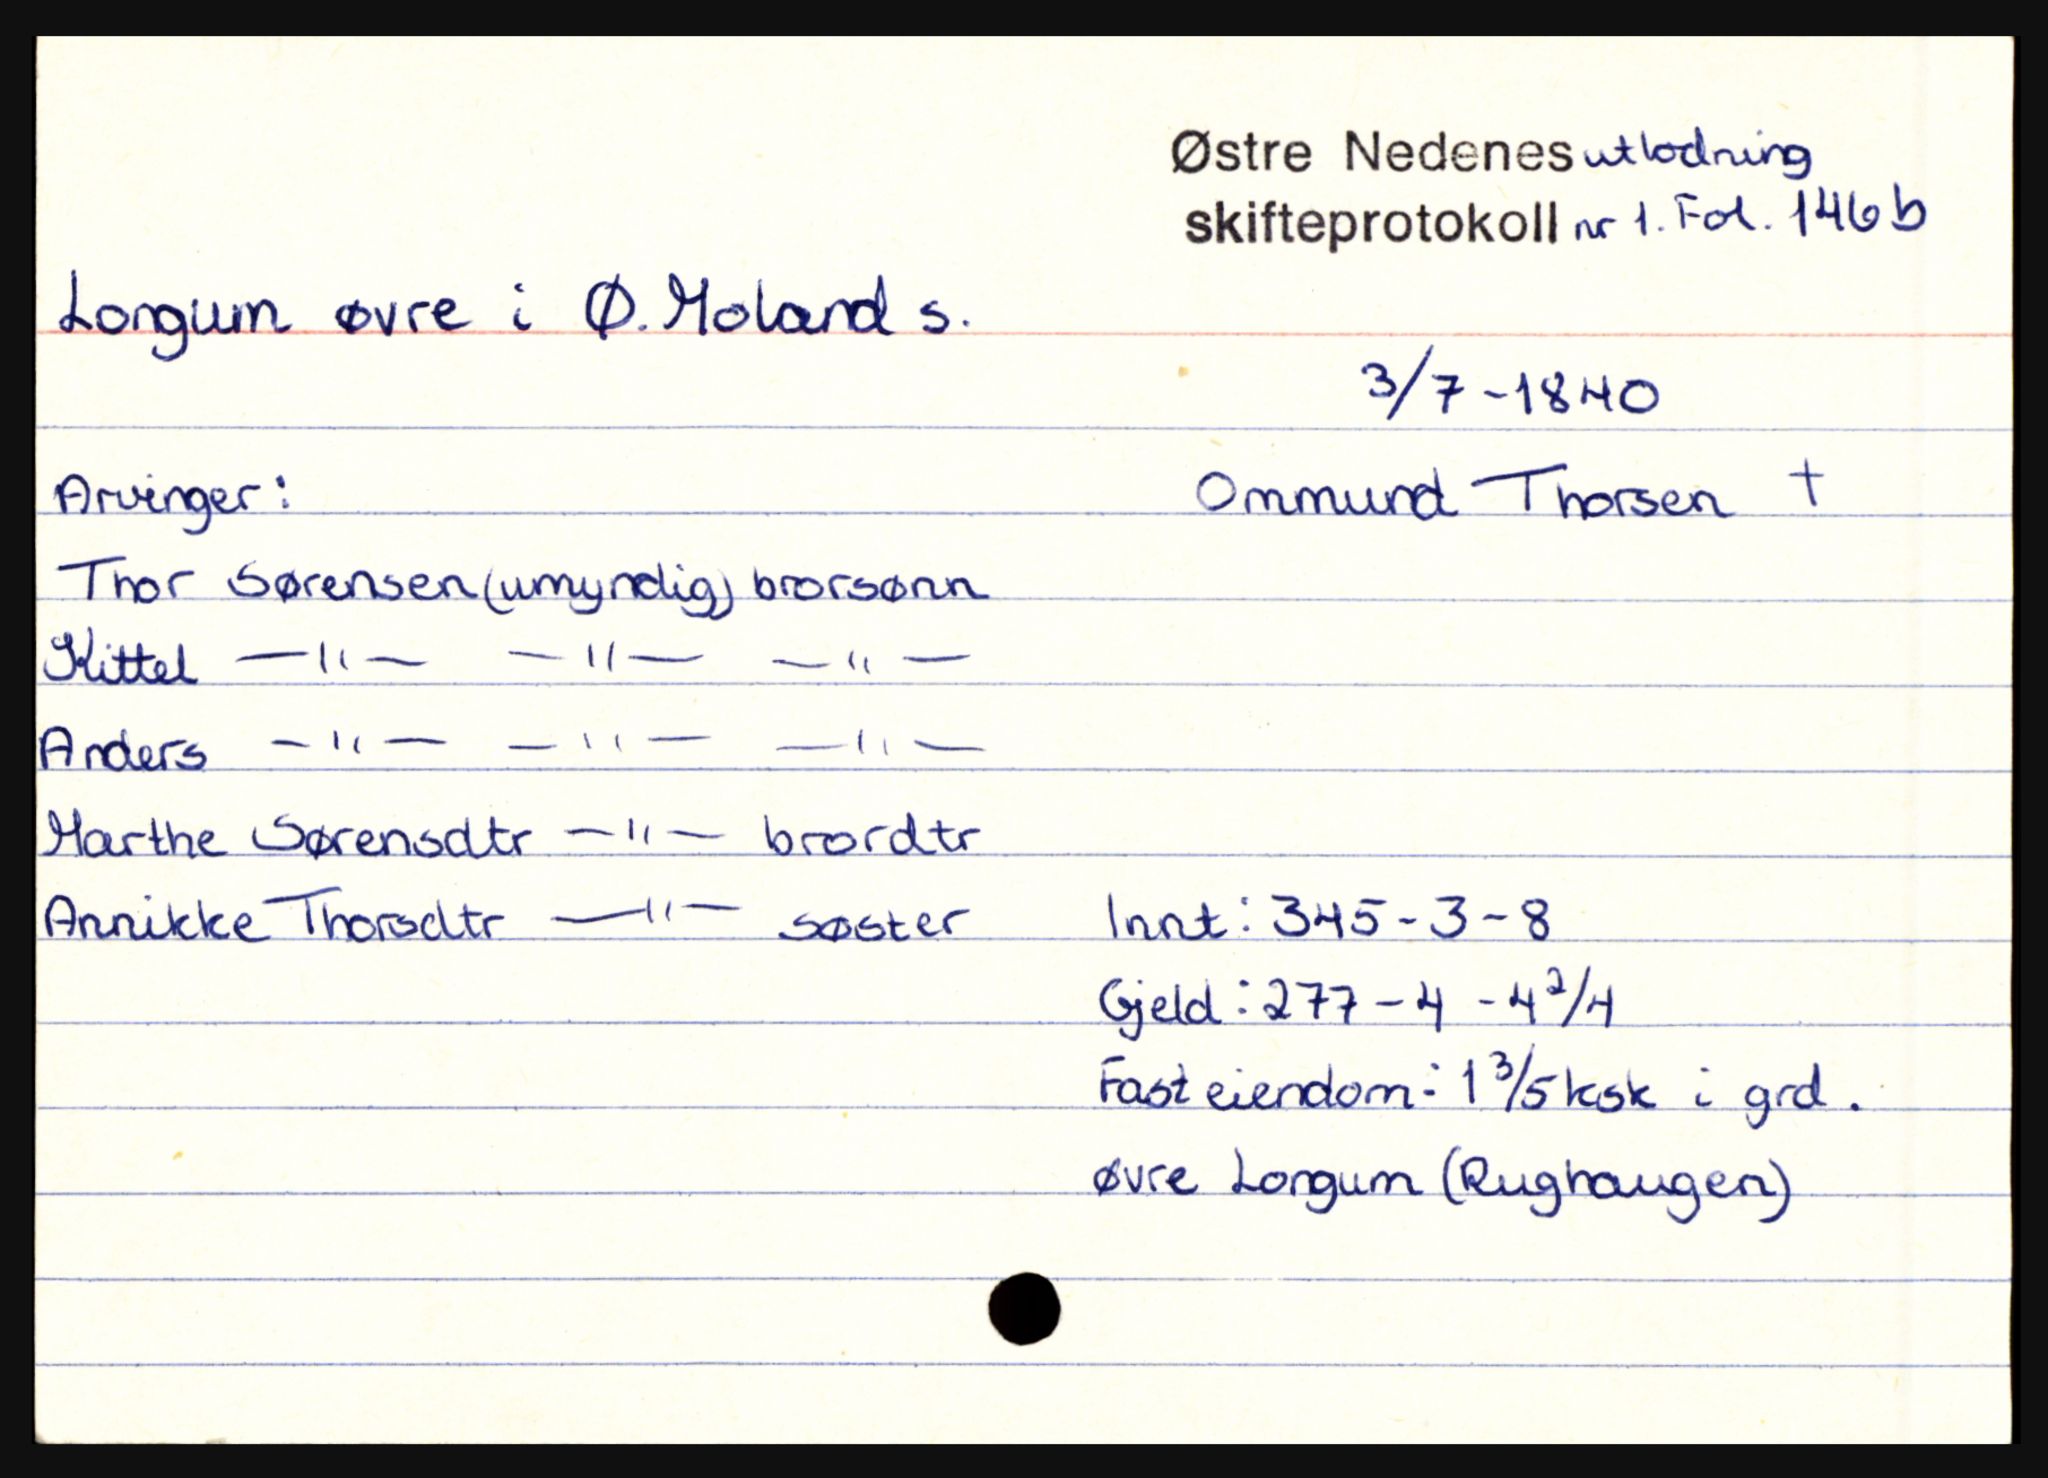 Østre Nedenes utlodning
skifteprotokoll nr 1. Fol. 146b
Longum øvre i Ø. Moland s.
3/7 - 1840
Arvinger:
Ommund Thorsen †
Thor Sørensen (umyndig) brorsønn
Kittel —"— —"— —"—
Anders —"— —"— —"—
Marthe Sørensdtr —"— brordtr
Annikke Thorsdtr —"— søster
Innt: 345 - 3 - 8
Gjeld: 277 - 4 - 4 2/4
Fast eiendom: 1 3/5 ksk i grd.
øvre Longum (Rughaugen)